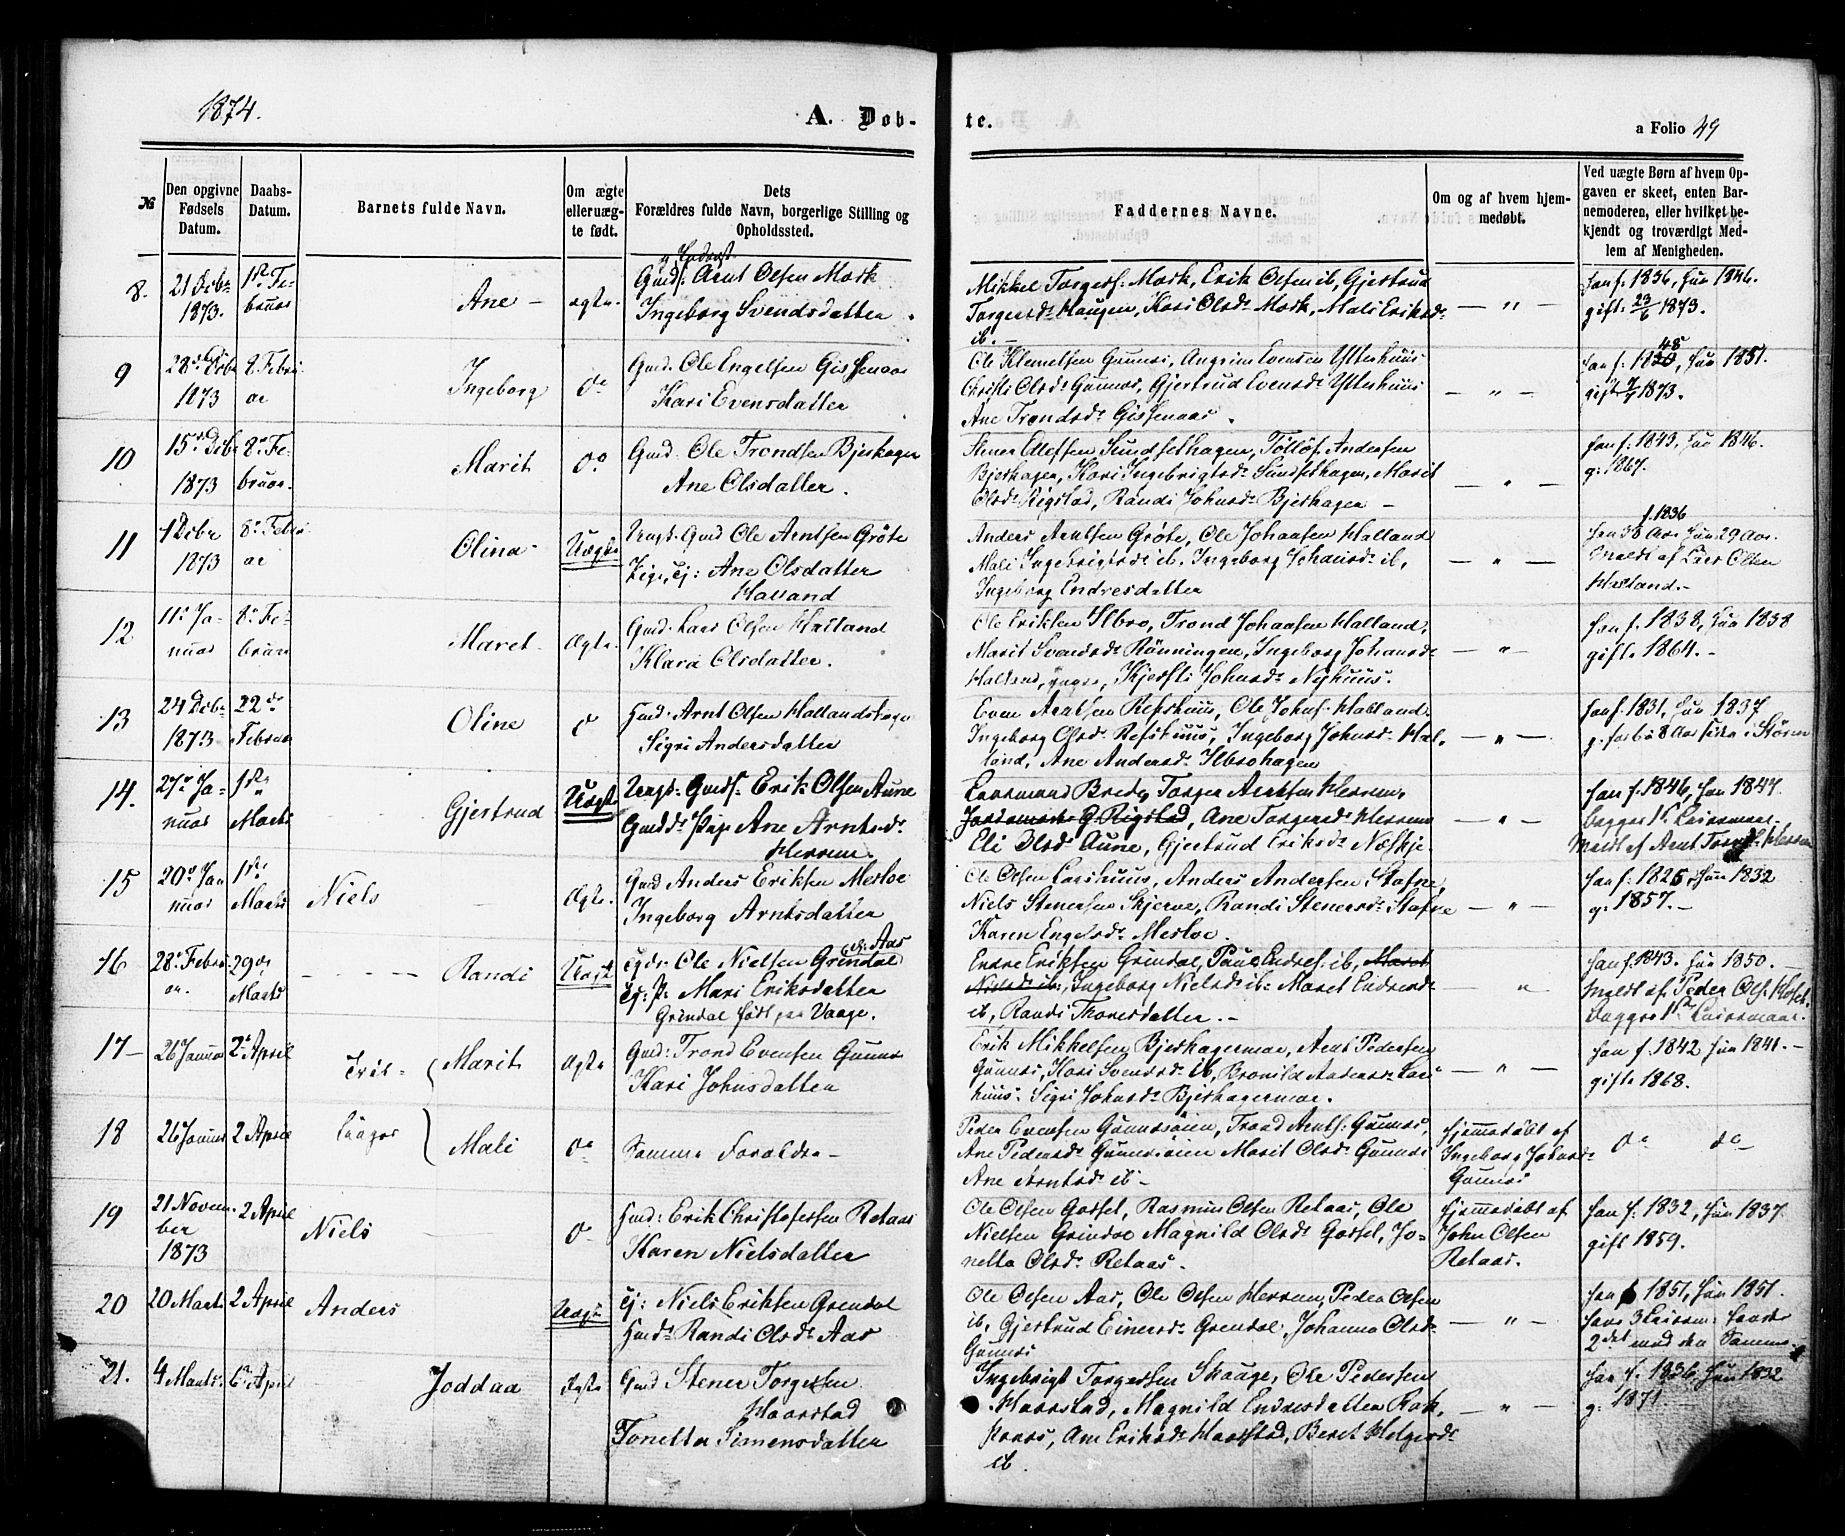 1874.
A. Døb-
te.
a Folio 49
№
Den opgivne Fødsels Datum.
Daabs-Datum.
Barnets fulde Navn.
Om ægte eller uægte født.
Dets Forældres fulde Navn, borgerlige Stilling og Opholdssted.
Faddernes Navne.
Om og af hvem hjemmedøbt.
Ved uægte Børn af hvem Opgaven er skeet, enten Barnemoderen, eller hvilket bekjendt og troværdigt Medlem af Menigheden.
8. 21 Decbr 1873. 1ste Februar
Ane
ægte.
Arnt Olsen Mork
Ingeborg Svendsdatter
Mikkel Torgers. Mork, Erik Olsen ib, Gjertrud
Torgersd. Haugen, Kari Olsd. Mork, Mali Eriksd.
ib.
— " —
han f. 1836, hun 1846.
gift 23/6 1873.
9 28de Decbr 1873 8 Februar
Ingeborg
do
Gmd. Ole Engelsen Gissenaas
Kari Evensdatter
Ole Klemetsen Gunnes, Angrim Evensen Ytterhuus
Christi Olsd. Gunnes, Gjertrud Evensd. Ytterhuus
Ane Trondsd. Gissenaas.
— " —
han f. 1848, hun 1851.
gift 1873.
10 15de Decbr 1873 8de Februar.
Marit
do
Gmd. Ole Trondsen Bjerhagen
Ane Olsdatter.
Stener Ellefsen Sundsethagen, Tollof Andersen
Bjerhagen, Kari Ingebrigtsd. Sundsethagen, Marit
Olsd. Rigstad, Randi Johnsd. Bjerhagen —
— " —
han f. 1843, hun 1846.
g. 1867.
11 1 Decbr 1873 8de Februar
Olina
Uægte
Ungk. Gmd Ole Arntsen Grøte
Pige, ej: Ane Olsdatter
Halland
Anders Arntsen Grøte, Ole Johnsen Halland
Mali Ingebrigtsd. ib, Ingeborg Johnsd. ib,
Ingeborg Endresdatter
— " —
f. 1836
han 38 Aar hun 29 Aar.
Meldt af Lars Olsen
Halland.
12 11te Januar 8de Februar
Maret
Ægte.
Gmd. Lars Olsen Halland
Klara Olsdatter.
Ole Eriksen Ilbro, Trond Johnsen Halland,
Marit Svendsd. Rønningen, Ingeborg Johnsd.
Halland, yngre, Kjersti Johnsd. Nyhuus.
— " —
han f. 1838, hun 1838
gift 1864.
13 24 Decbr 1873 22de Februar
Oline
do
Hmd. Arnt Olsen Hallandshagen
Sigri Andersdatter
Even Arntsen Refshuus, Ole Johns. Halland
Ingeborg Olsd. Refshuus, Ingeborg Johnsd. Hal-
land, Ane Andersd. Ilbrohagen
— " —
han f. 1831, hun 1837
g. for 8 Aar siden i Støren
14. 27de Januar 1ste Marts
Gjertrud
Uægte
Ungk. Gmds. Erik Olsen Aune
Gmdd. Pige Ane Arntsd.
Herrem.
Brede, Torger Arntsen Herrem,
Rigstad, Ane Torgersd. Herrem
Eli Olsd Aune, Gjertrud Eriksd. Næskje.
— " —
han f. 1846, hun 1847.
begges 1ste Leiermaal.
Meldt af Arnt Herrem
15 20de Jan uar 1ste Marts
Niels
Ægte.
Gmd Anders Eriksen Mesloe
Ingeborg Arntsdatter
Ole Olsen Larshuus, Anders Andersen Stafne,
Niels Stenersen Skjerve, Randi Stenersd. Stafne
Karen Engelsd. Mesloe.
— " —
han f. 1826, hun 1832
g. 1857.
16 28de Februar. 29de Marts
Randi
Uægte
Ole Nielsen Grindal Aas
ej: P: Mari Eriksdatter
Grindal født paa Vaage.
Endre Eriksen Grindal, Paul Endres. ib, Maret
Nielsd. ib, Ingeborg Nielsd. ib. Maret Endresd.
ib, Randi Thoresdatter.
"
han f. 1843. hun 1850.
Meldt af Peder Ols.
Begges 1ste Leiermaal.
17 26 Januar 2de April
Tvil-
Marit
Ægte
Gmd. Trond Evensen Gunnes
Kari Johnsdatter
Erik Mikkelsen Bjerhagermoe, Arnt Pedersen
Gunnes, Kari Svendsd. ib, Bronild Andersd. Lars-
huus. Sigri Johnsd. Bjerhagermoe.
— " —
han f. 1842 hun 1841.
gift 1868.
18 26 Januar 2 April
linger
Mali
do
Samme Forældre
Peder Evensen Gunnesøien, Trond Arnts. Gunnes,
Ane Pedersd. Gunnesøien Marit Olsd. Gunnes
Ane Arntsd. ib
hjemmedøbt af
Ingeborg Johnsd.
Gunnes
do do
19 21 November 1873 2 April
Niels
do
Hmd. Erik Christofersen Retaas
Karen Nielsdatter
Ole Olsen Gorset, Rasmus Olsen Retaas, Ole
Nielsen Grindal Magnild Olsd. Gorset, Jo-
netta Olsd. Retaas.
hjemmedøbt af
John Olsen
Retaas.
han f. 1832, hun 1837.
gift 1859.
20 20 Marts 2 April
Anders
Uægte
ej: Niels Eriksen Grendal
Hmd. Randi Olsd. Aas
Ole Olsen Aas, Ole Olsen Herrem, Peder Olsen
ib, Gjertrud Einersd. Grendal, Johanna Olsd.
Gunnes
— " —
han f 1851, hun 1851.
hans 3 Leierm. hendes
2det med den Samme
21. 4 Marts 6te April
Joddaa
Ægte
Gmd Stener Torgersen
Haarstad
Tonetta Simensdatter
Ingebrigt Torgersen Skaage, Ole Pedersen
Haarstad, Magnild Endresdatter Rok-
kones, Ane Eriksd. Haarstad, Beret Helgesd.
ib.
— " —
han f. 1836, hun 1832
g. 1871